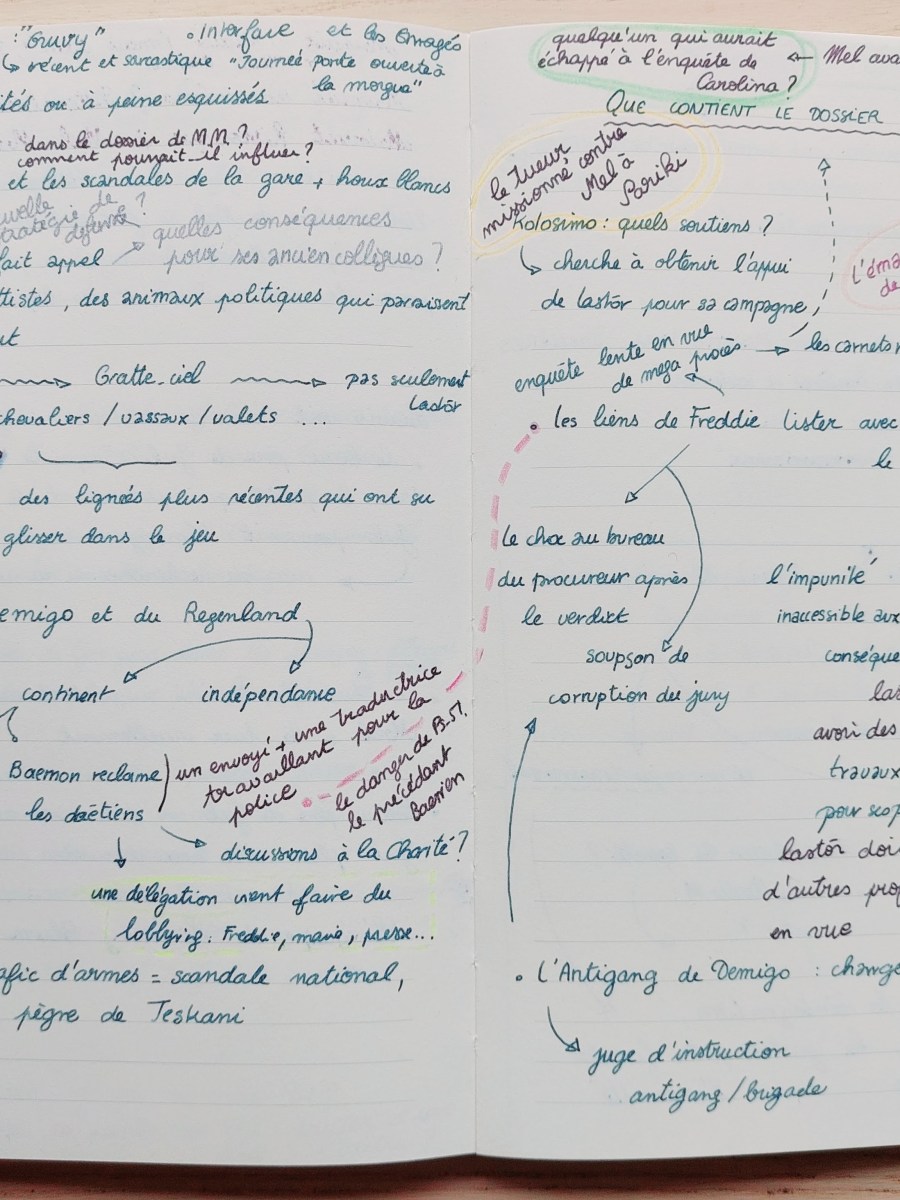 : "Gruvy"
• Interface et les Enragés
↳ récent et sarcastique "Journée porte ouverte à
la morgue"
ités ou à peine esquissés
dans le dossier de M.M. ?
comment pourrait-il influer ?
et les scandales de la gare + houx blancs
uvelle
tratégie de
défense ?
quelles conséquences
pour ses ancien collègues ?
fait appel
ttistes, des animaux politiques qui paraissent
ut
Gratte-ciel
pas seulement
Lastör
chevaliers / vassaux / valets ...
des lignées plus récentes qui ont su
glisser dans le jeu
emigo et du Regenland
continent
indépendance
Baemon reclame
les daëtiens
un envoyé + une traductrice
travaillant pour la
police
le danger de Ps.51.
le précédant
Baenien
discussions à la Charité ?
une délégation vient faire du
lobbying : Freddie, mairie, presse...
afic d'armes = scandale national,
pègre de Teskani
quelqu'un qui aurait
échappé à l'enquête de
Carolina ?
← Mel ava
QUE CONTIENT LE DOSSIER
le tueur
missionné contre
Mel à
Pariki
Kolosimo : quels soutiens ?
↳ cherche à obtenir l'appui
de Lastör pour sa campagne
L'éma
de
enquête lente en vue
de mega procès
→ les carnets
• les liens de Freddie Lister avec
le
le choc au bureau
du procureur après
le verdict
soupson de
corruption du jury
l'impunité
inaccessible aux
conséque
las
avoir des
travaux
pour scop
Lastör doi
d'autres pro
en vue
• L'Antigang de Demigo : change
juge d'instruction
antigang / brigade